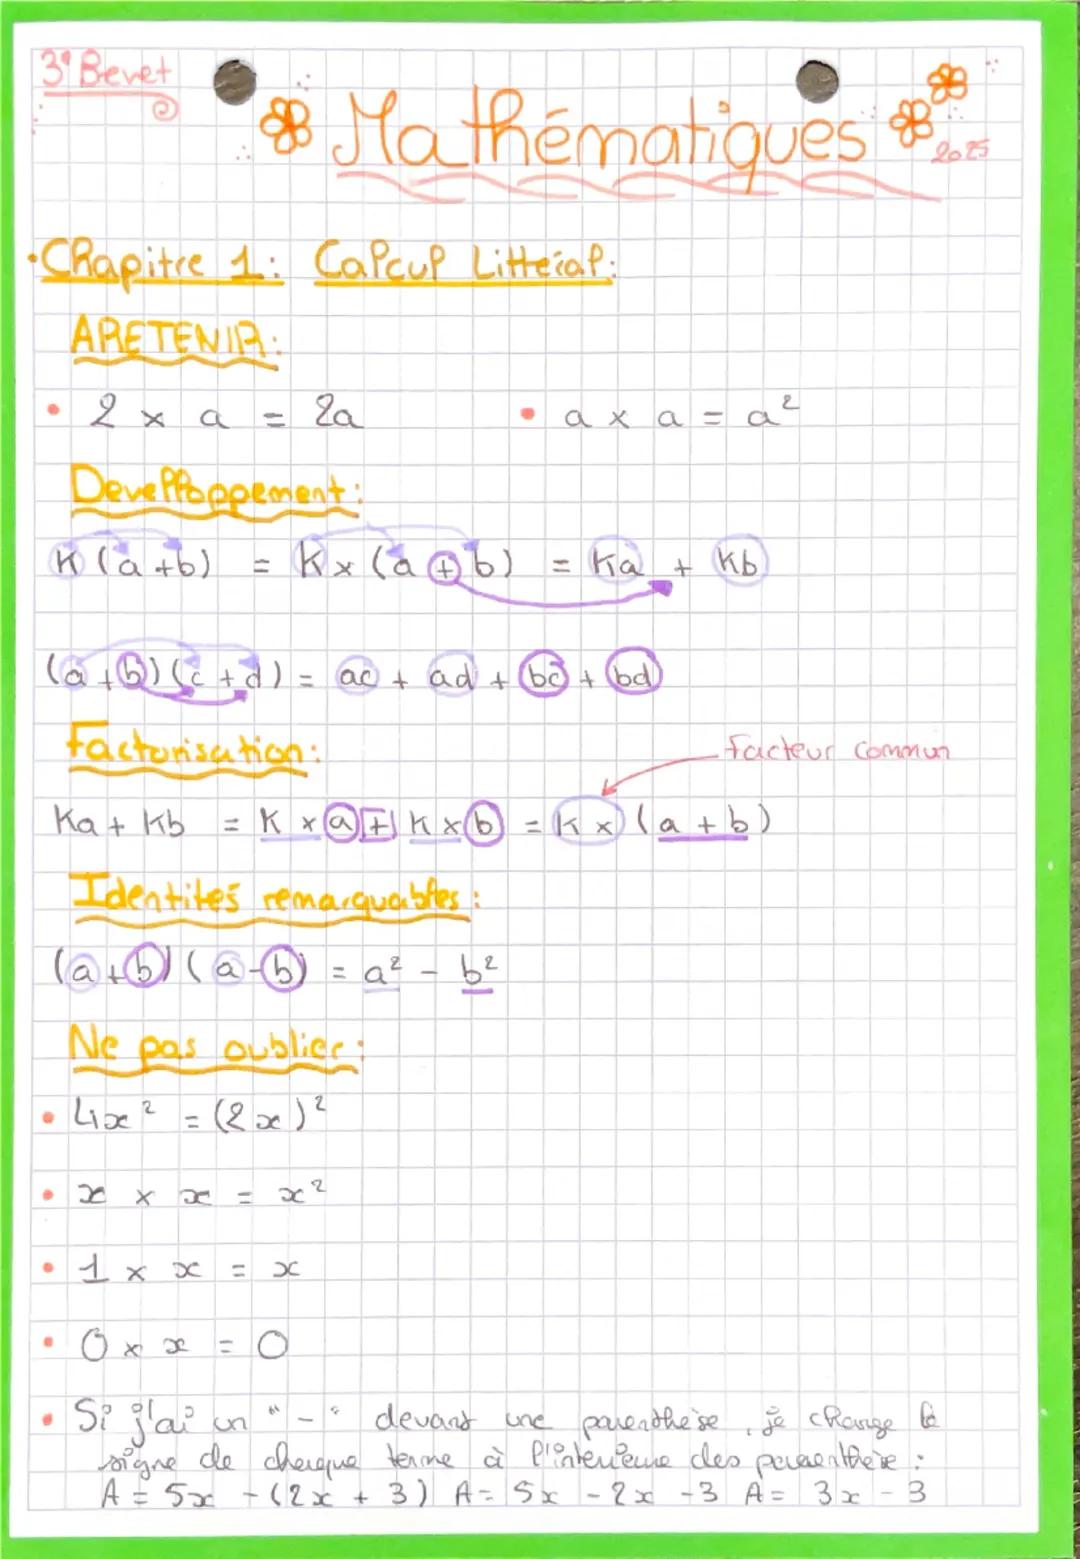 3° Bevet
Mathématiques
2025
• Chapitre 1: Calcul Litteral:
A RETENIR:
• 2 × a = 2a • a × a = a²
Develloppement:
K (a+b) = K × (a + b) = Ka + Kb
(a + b) (c + d) = ac + ad + bc + bd
Factorisation:
Facteur commun
Ka + Kb = K × a + K × b = K × (a + b)
Identités remarquables:
(a + b) (a - b) = a² - b²
Ne pas oublier:
• 4x² = (2x)²
• x × x = x²
• 1 × x = x
• 0 × x = 0
• Si j'ai un "-" devant une parenthèse, je change le
signe de chaque terme à l'interieure des parenthèse :
A = 5x - (2x + 3) A = 5x - 2x - 3 A = 3x - 3